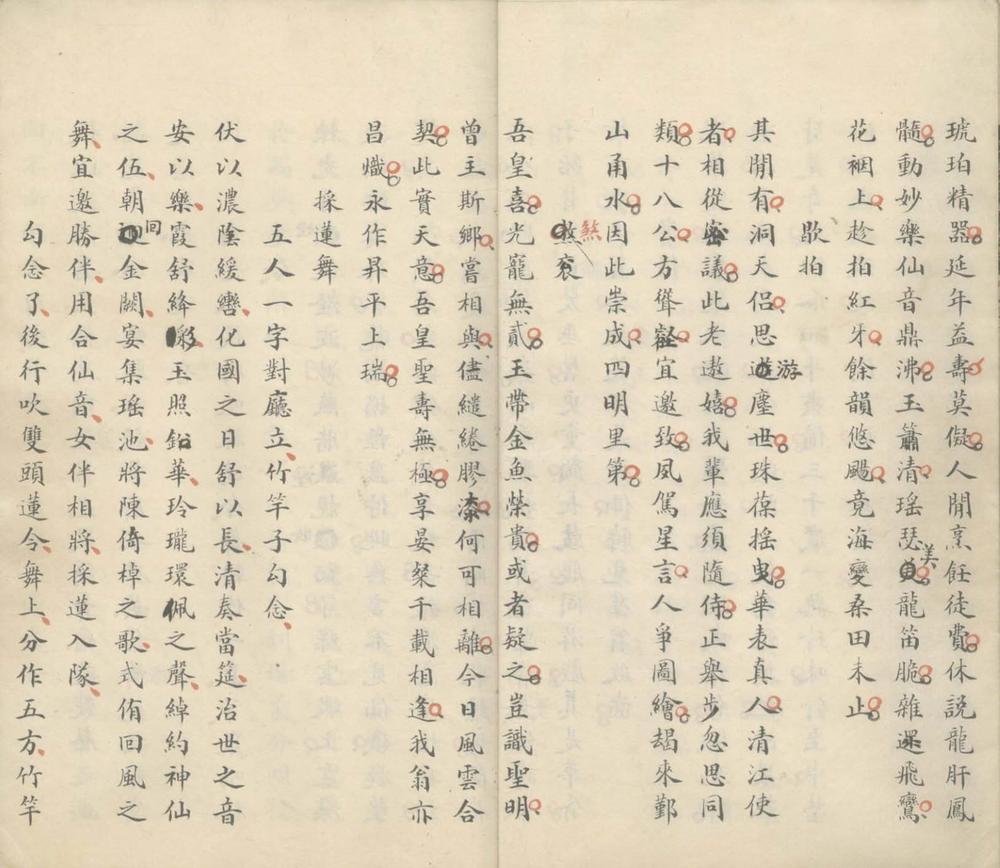 琥珀精器延年益壽莫儗人間烹飪徒費休説龍肝鳳
髓動妙樂仙音鼎沸玉簫清瑶瑟美龍笛脆雜還飛鸞
花裀上趁拍紅牙餘韻悠颺竟海變桑田未止
歇拍
其閒有洞天侶思游塵世珠葆摇曳華表真人清江使
者相從密議此老遨嬉我輩應須隨侍正舉步忽思同
類十八公方聳壑宜邀致夙駕星言人爭圖繪朅來鄞
山甬水因此崇成四明里第
煞衮
吾皇喜光寵無貳玉帶金魚榮貴或者疑之豈識聖明
曾主斯鄉嘗相與儘繾綣膠漆何可相離今日風雲合
契此實天意吾皇聖壽無極享晏粲千載相逢我翁亦
昌熾永作昇平上瑞
採蓮舞
五人一字對廳立竹竿子勾念
伏以濃陰緩轡化國之日舒以長清奏當筵治世之音
安以樂霞舒絳彩玉照鉛華玲瓏環佩之聲綽約神仙
之伍朝回金闕宴集瑶池將陳倚棹之歌式侑回風之
舞宜邀勝伴用合仙音女伴相將採蓮入隊
勾念了後行吹雙頭蓮令舞上分作五方竹竿